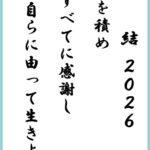 結 2026
を積め
すべてに感謝し
自らに由って生きよ